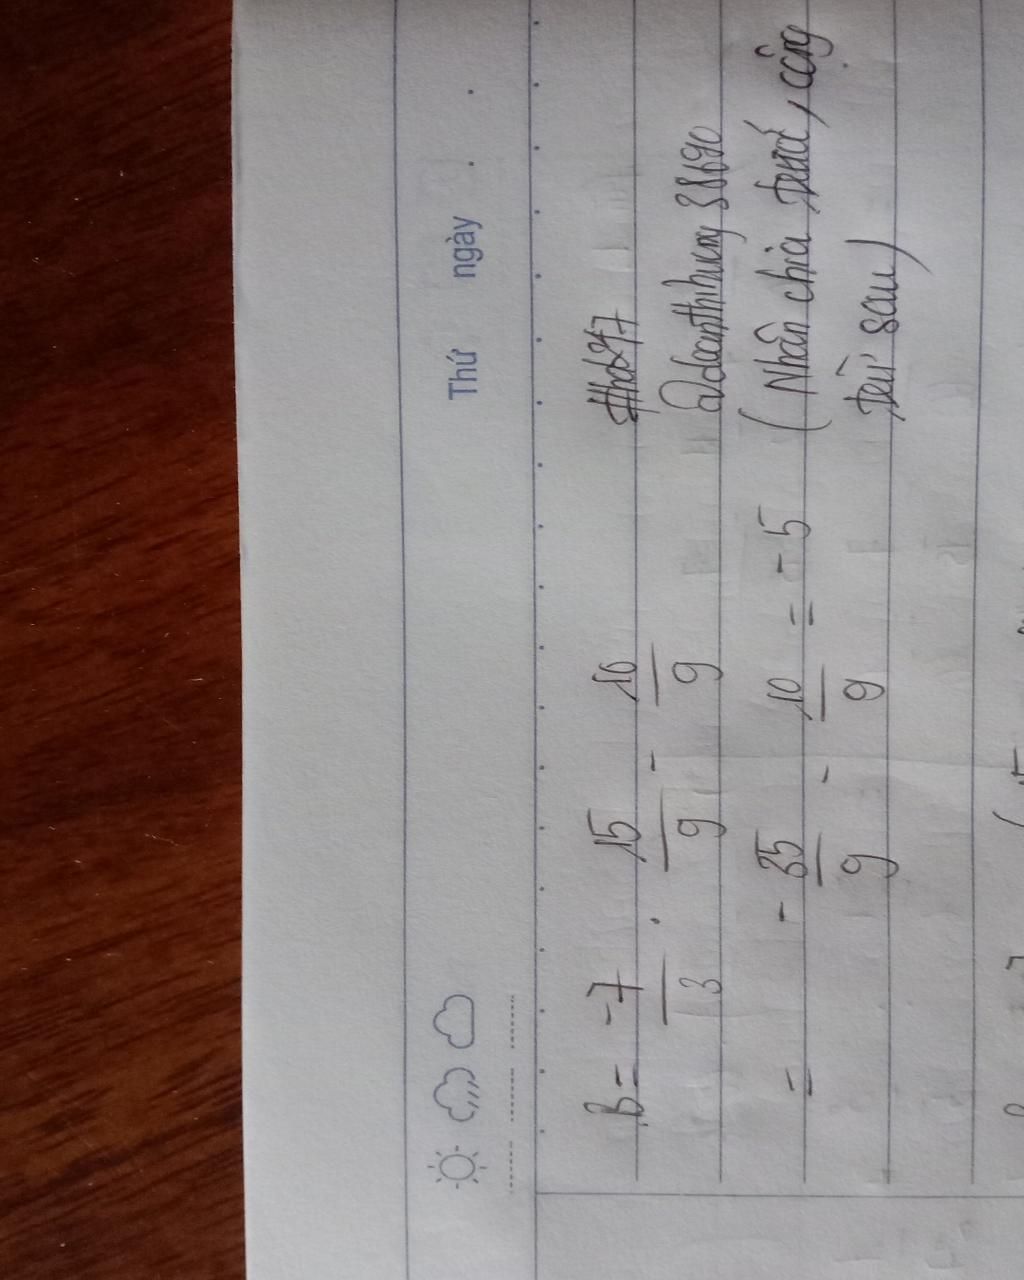 Thứ ngày . .
B = -7/3 . 15/9 - 10/9
#hoc247
@doanthihuong88690
= -35/9 - 10/9 = -5
(Nhân chia trước, cộng
trừ sau)